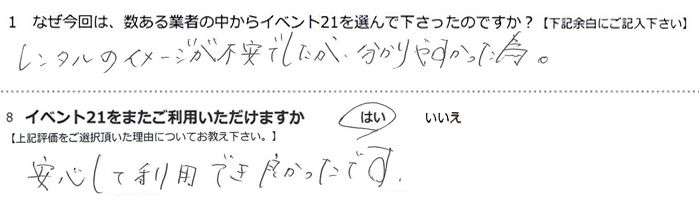 1 なぜ今回は、数ある業者の中からイベント21を選んで下さったのですか？【下記余白にご記入下さい】
レンタルのイメージが不安でしたが、分かりやすかった為。
8 イベント21をまたご利用いただけますか はい いいえ
【上記評価をご選択頂いた理由についてお教え下さい。】
安心して利用でき良かったです。